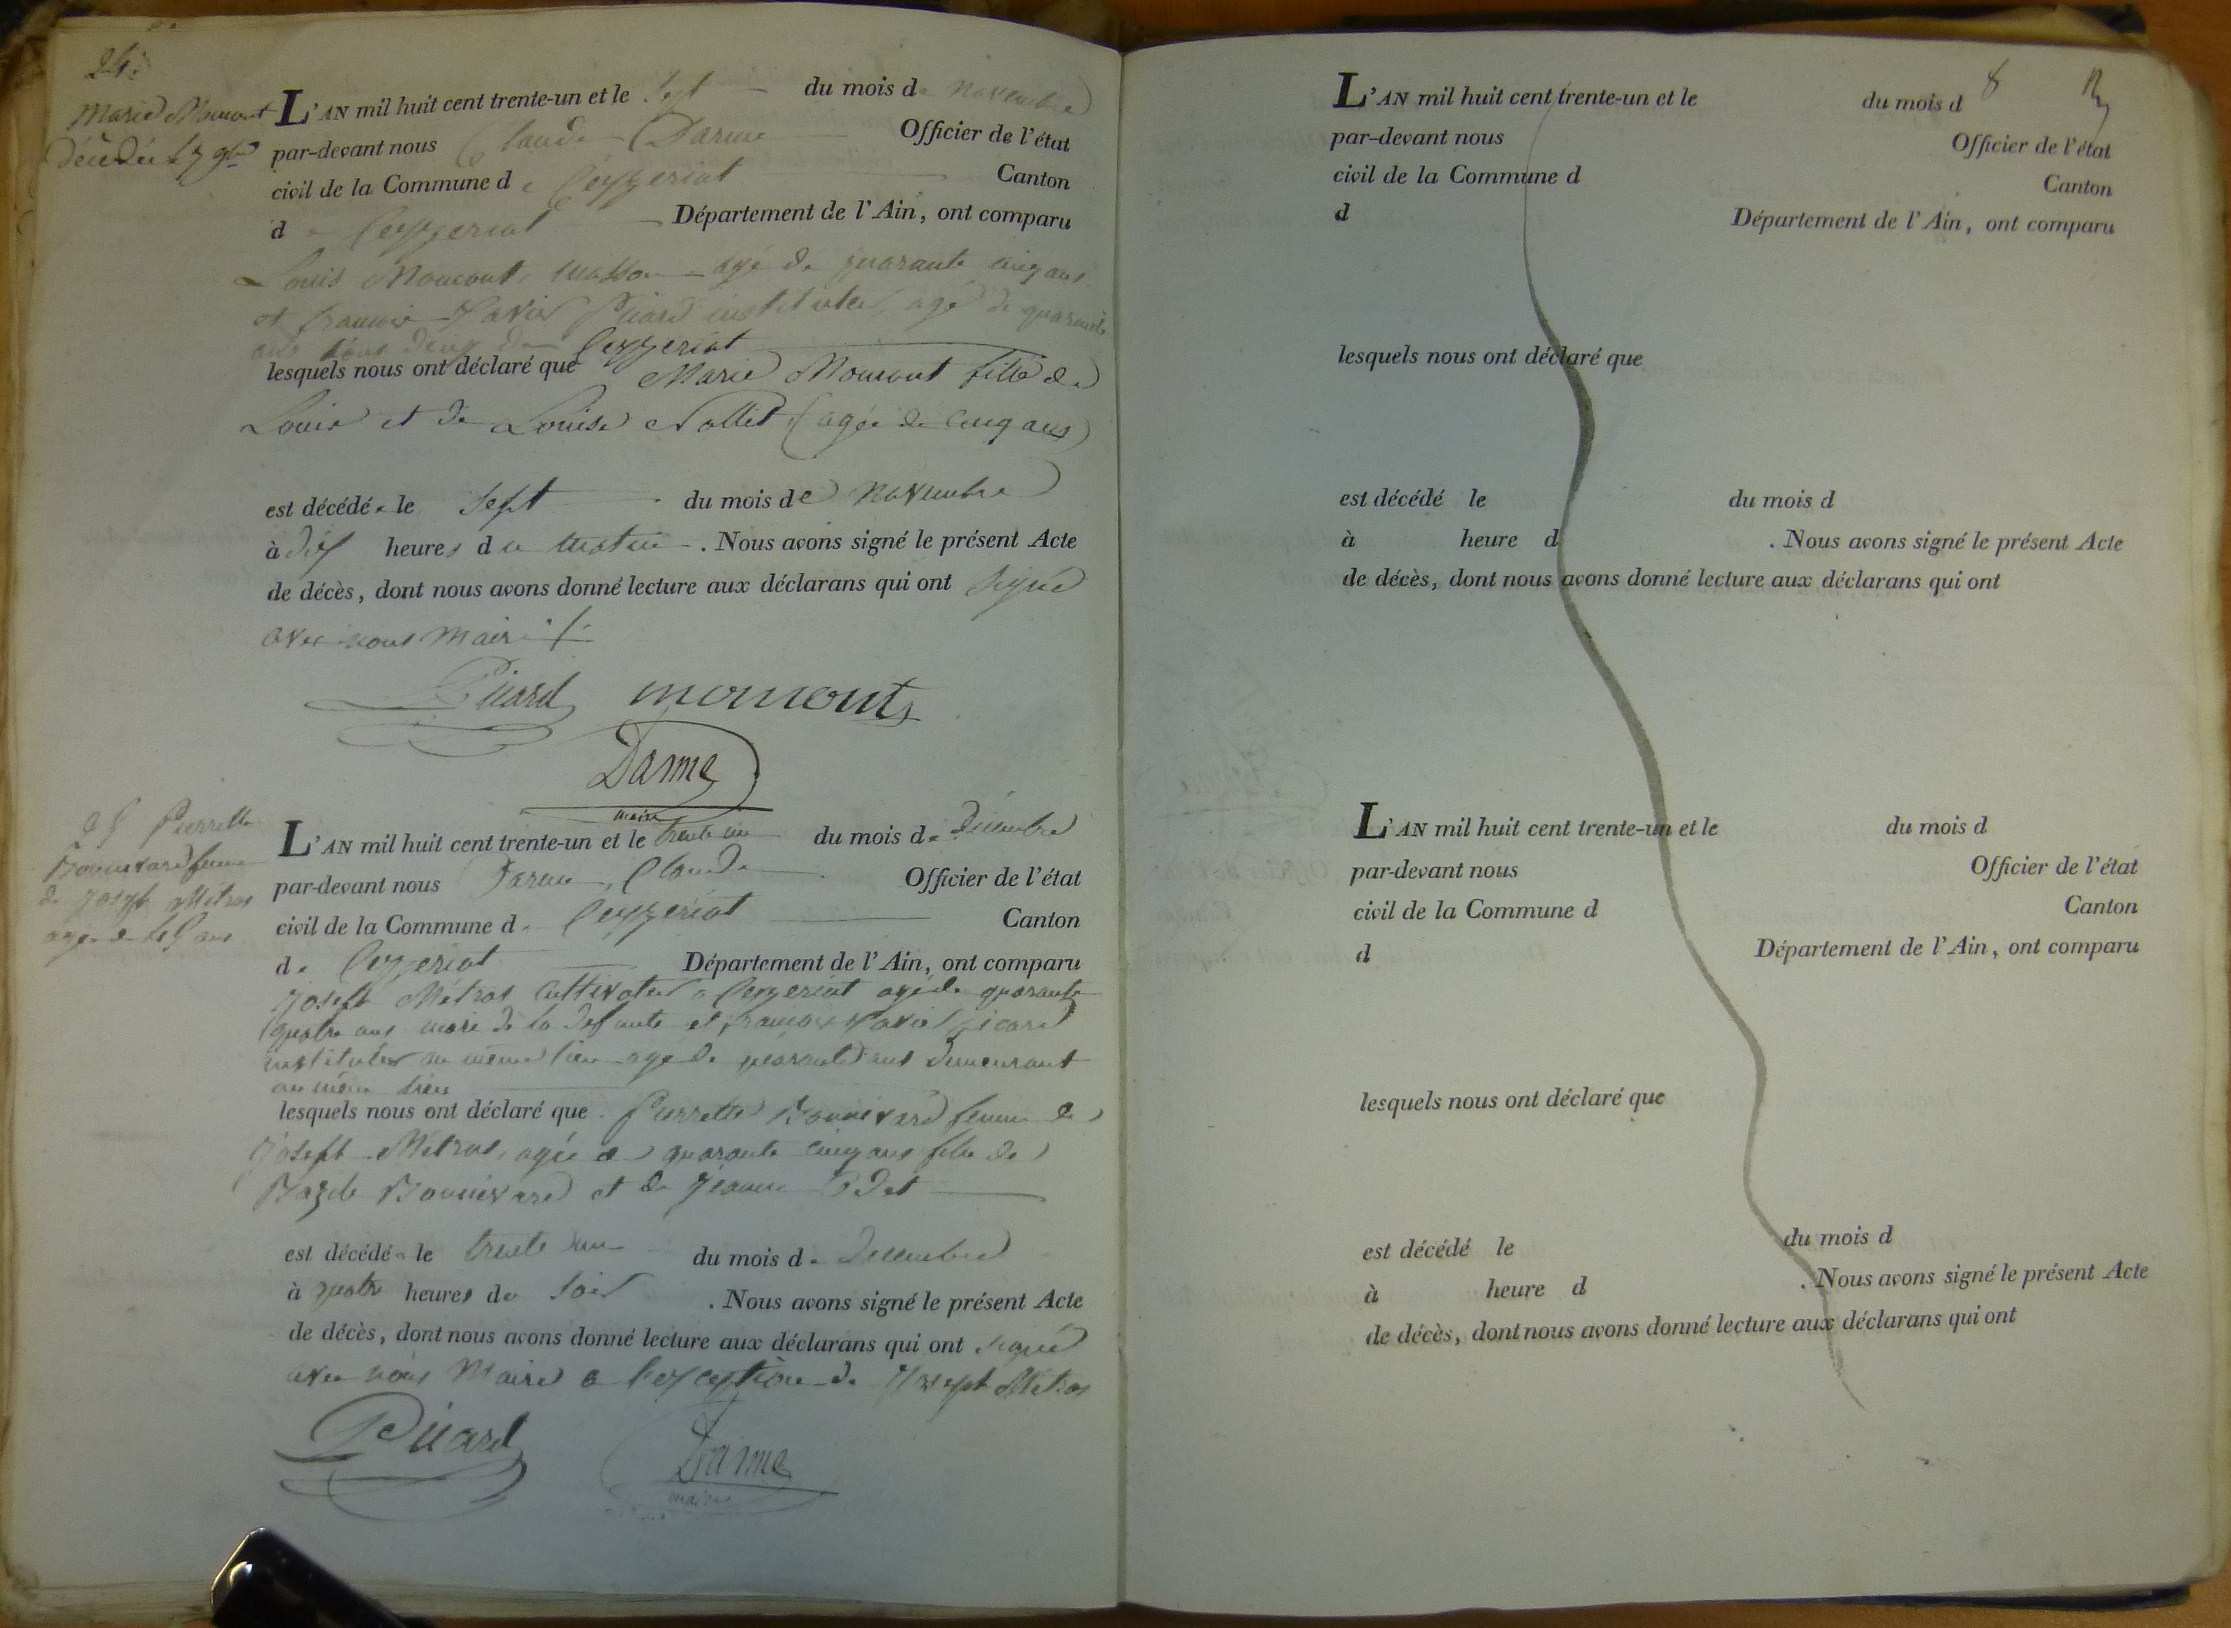 24
Marie Momont
décédée le 7 9bre
L'AN mil huit cent trente-un et le sept du mois de novembre
par-devant nous Claude Darme Officier de l'état
civil de la Commune de Ceyzeriat Canton
de Ceyzeriat Département de l'Ain, ont comparu
Louis Momont, masson agé de quarante cinq ans
et françois Xavier Picard instituteur, agé de quarante
ans tous deux de Ceyzeriat
lesquels nous ont déclaré que Marie Momont fille de
Louis et de Louise Nallet (agée de cinq ans)
est décédée le sept du mois de novembre
à dix heures du matin. Nous avons signé le présent Acte
de décès, dont nous avons donné lecture aux déclarans qui ont signé
avec nous maire
Picard momont
Darme
maire
25 Pierrette
Bonnevard femme
de Joseph Métras
agée de 45 ans
L'AN mil huit cent trente-un et le trente un du mois de Décembre
par-devant nous Darme, Claude Officier de l'état
civil de la Commune de Ceyzériat Canton
de Ceyzeriat Département de l'Ain, ont comparu
Joseph Métras cultivateur a Ceyzeriat agé de quarante
quatre ans mari de la defunte et françois Xavier Picard
instituteur au même lieu agé de quarante ans demeurant
au même lieu
lesquels nous ont déclaré que Pierrette Bonnevard femme de
Joseph Métras, agée de quarante cinq ans fille de
Bonnevard et de Jeanne
est décédée le trente un du mois de Decembre
à quatre heures du soir. Nous avons signé le présent Acte
de décès, dont nous avons donné lecture aux déclarans qui ont signé
avec nous Maire a l'exception de Joseph Métras
Picard Darme
maire
8
L'AN mil huit cent trente-un et le du mois d
par-devant nous Officier de l'état
civil de la Commune d Canton
d Département de l'Ain, ont comparu
lesquels nous ont déclaré que
est décédé le du mois d
à heure d . Nous avons signé le présent Acte
de décès, dont nous avons donné lecture aux déclarans qui ont
L'AN mil huit cent trente-un et le du mois d
par-devant nous Officier de l'état
civil de la Commune d Canton
d Département de l'Ain, ont comparu
lesquels nous ont déclaré que
est décédé le du mois d
à heure d . Nous avons signé le présent Acte
de décès, dont nous avons donné lecture aux déclarans qui ont